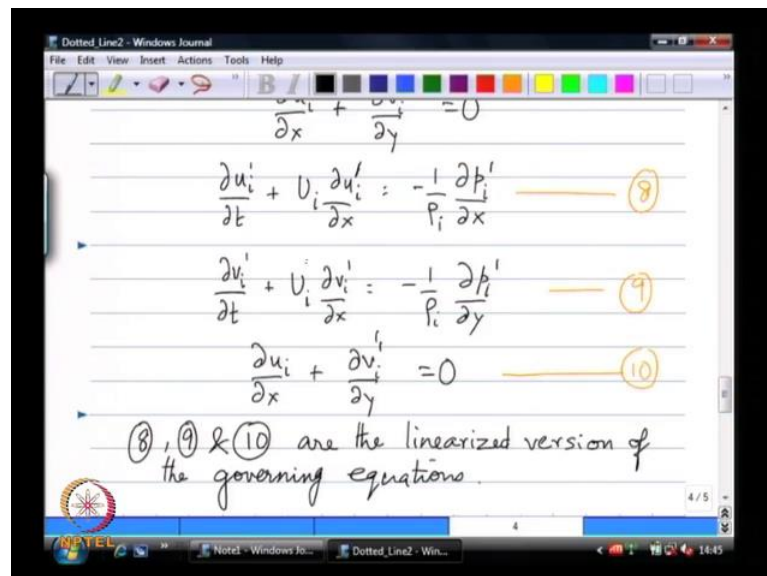 Dotted_Line2 - Windows Journal
File Edit View Insert Actions Tools Help
B I
∂x + ∂y =0
∂uᵢ'/∂t + Uᵢ ∂uᵢ'/∂x = -1/ρᵢ ∂pᵢ'/∂x 8
∂vᵢ'/∂t + Uᵢ ∂vᵢ'/∂x = -1/ρᵢ ∂pᵢ'/∂y 9
∂uᵢ/∂x + ∂vᵢ'/∂y =0 10
8, 9 & 10 are the linearized version of
the governing equations.
4 / 5
4
NPTEL
Note1 - Windows Jo... Dotted_Line2 - Win... 14:45